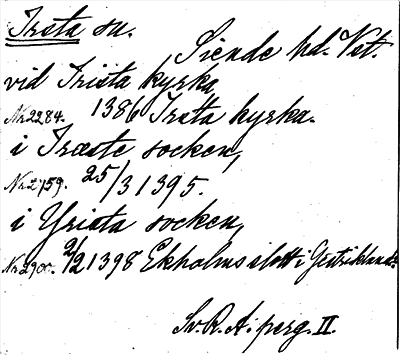 Irsta sn. Siende hd. Vst.
vid Irista kyrka,
Nr 2284. 1386 Irsta kyrka.
i Iræste socken,
Nr 2759. 25/3 1395.
i Yrista socken,
Nr 2900. 2/2 1398 Ekholms slott i Gestrikland.
Sv. R. A. perg. II.